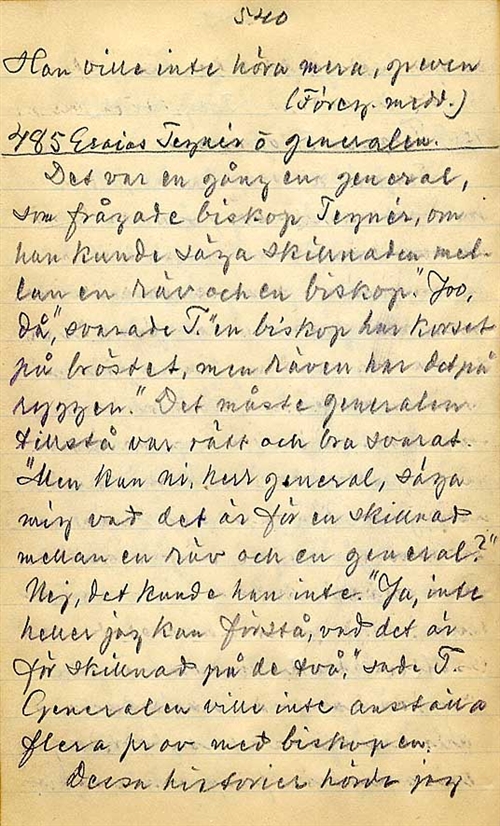 540
Han ville inte höra mera, greven
(Föreg. medd.)
485 Esaias Tegnér o generalen.
Det var en gång en general,
som frågade biskop Tegnér, om
han kunde säga skillnaden mel-
lan en räv och en biskop. "Joo,
då", svarade T. "en biskop har korset
på bröstet, men räven har det på
ryggen." Det måste generalen
tillstå var rätt och bra svarat.
"Men kan ni, herr general, säga
mig vad det är för en skillnad
mellan en räv och en general?"
Nej, det kunde han inte. "Ja, inte
heller jag kan förstå, vad det är
för skillnad på de två," sade T.
Generalen ville inte anställa
flera prov med biskopen.
Dessa historier hörde jag